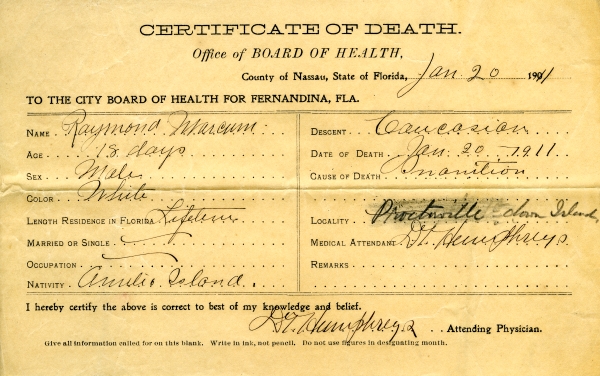 CERTIFICATE OF DEATH.
Office of BOARD OF HEALTH,
County of Nassau, State of Florida, Jan 20 1911
TO THE CITY BOARD OF HEALTH FOR FERNANDINA, FLA.
NAME Raymond Marcum
AGE 18 days
SEX Male
COLOR White
LENGTH RESIDENCE IN FLORIDA Lifetime
MARRIED OR SINGLE
OCCUPATION
NATIVITY Amelia Island.
DESCENT Caucasian
DATE OF DEATH Jan. 20 - 1911
CAUSE OF DEATH Inanition
LOCALITY down Island
MEDICAL ATTENDANT Dr. Humphreys
REMARKS
I hereby certify the above is correct to best of my knowledge and belief.
Dr. Humphreys Attending Physician.
Give all information called for on this blank. Write in ink, not pencil. Do not use figures in designating month.